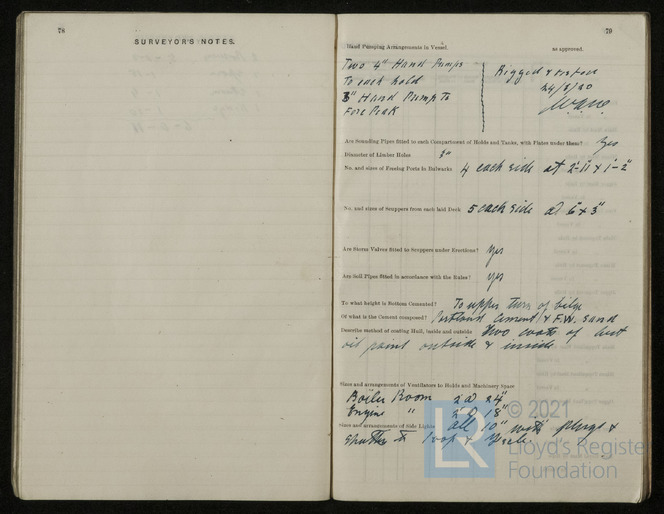 78
SURVEYOR'S NOTES.
79
Hand Pumping Arrangements in Vessel. as approved.
Two 4" Hand Pumps
To each hold
3" Hand Pump To
Fore Peak
Rigged & tested
24/8/20
Are Sounding Pipes fitted to each Compartment of Holds and Tanks, with Plates under them? Yes
Diameter of Limber Holes 3"
No. and sizes of Freeing Ports in Bulwarks 4 each side at 2'-11" x 1'-2"
No. and sizes of Scuppers from each laid Deck 5 each side at 6 x 3"
Are Storm Valves fitted to Scuppers under Erections? Yes
Are Soil Pipes fitted in accordance with the Rules? Yes
To what height is Bottom Cemented? To upper turn of bilge
Of what is the Cement composed? Portland Cement & F.W. sand
Describe method of coating Hull, inside and outside Two coats of best
oil paint outside & inside.
Sizes and arrangements of Ventilators to Holds and Machinery Space
Boiler Room 2 @ 24"
Engine " 2 @ 18"
Sizes and arrangements of Side Lights all 10" with plugs &
© 2021
Lloyd's Register
Foundation
LR